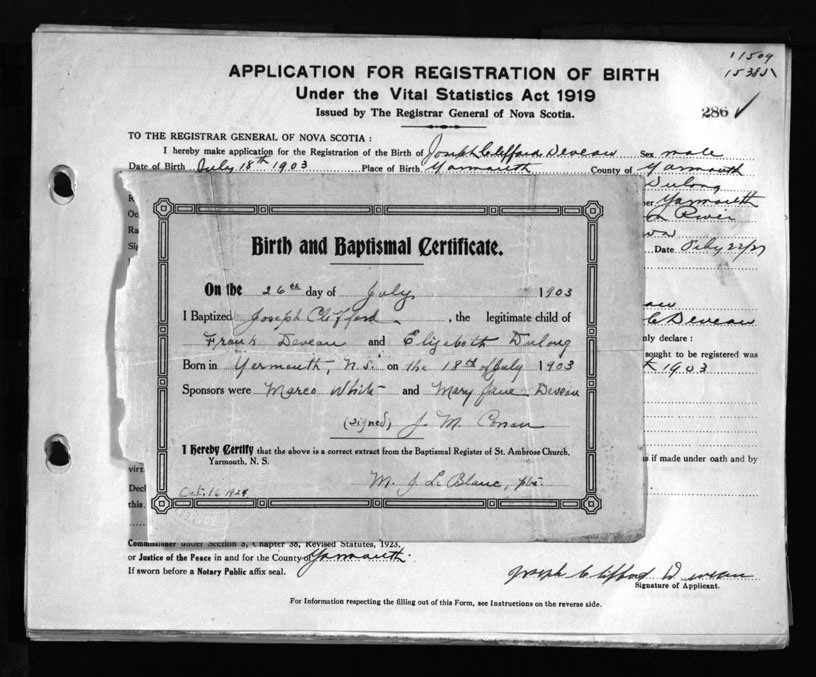 11509
286 ✓
APPLICATION FOR REGISTRATION OF BIRTH
Under the Vital Statistics Act 1919
Issued by The Registrar General of Nova Scotia.
TO THE REGISTRAR GENERAL OF NOVA SCOTIA :
I hereby make application for the Registration of the Birth of Joseph Clifford Deveau Sex male
Date of Birth July 18th 1903 Place of Birth Yarmouth County of Yarmouth
Dulong
Yarmouth
River
Date Feby 22/27
Birth and Baptismal Certificate.
On the 26th day of July 1903
I Baptized Joseph Clifford, the legitimate child of
Frank Deveau and Elizabeth Dulong
Born in Yarmouth, N.S. on the 18th of July 1903
Sponsors were White and Mary Jane Deveau
(signed) J. M.
I Hereby Certify that the above is a correct extract from the Baptismal Register of St. Ambrose Church,
Yarmouth, N. S.
M. J. LeBlanc,
Oct. 16 1924
C Deveau
nly declare :
sought to be registered was
1903
s if made under oath and by
virt
Decl
this,
Commissioner under Section 3, Chapter 38, Revised Statutes, 1923,
or Justice of the Peace in and for the County of Yarmouth.
If sworn before a Notary Public affix seal.
Joseph Clifford Deveau
Signature of Applicant.
For Information respecting the filling out of this Form, see Instructions on the reverse side.